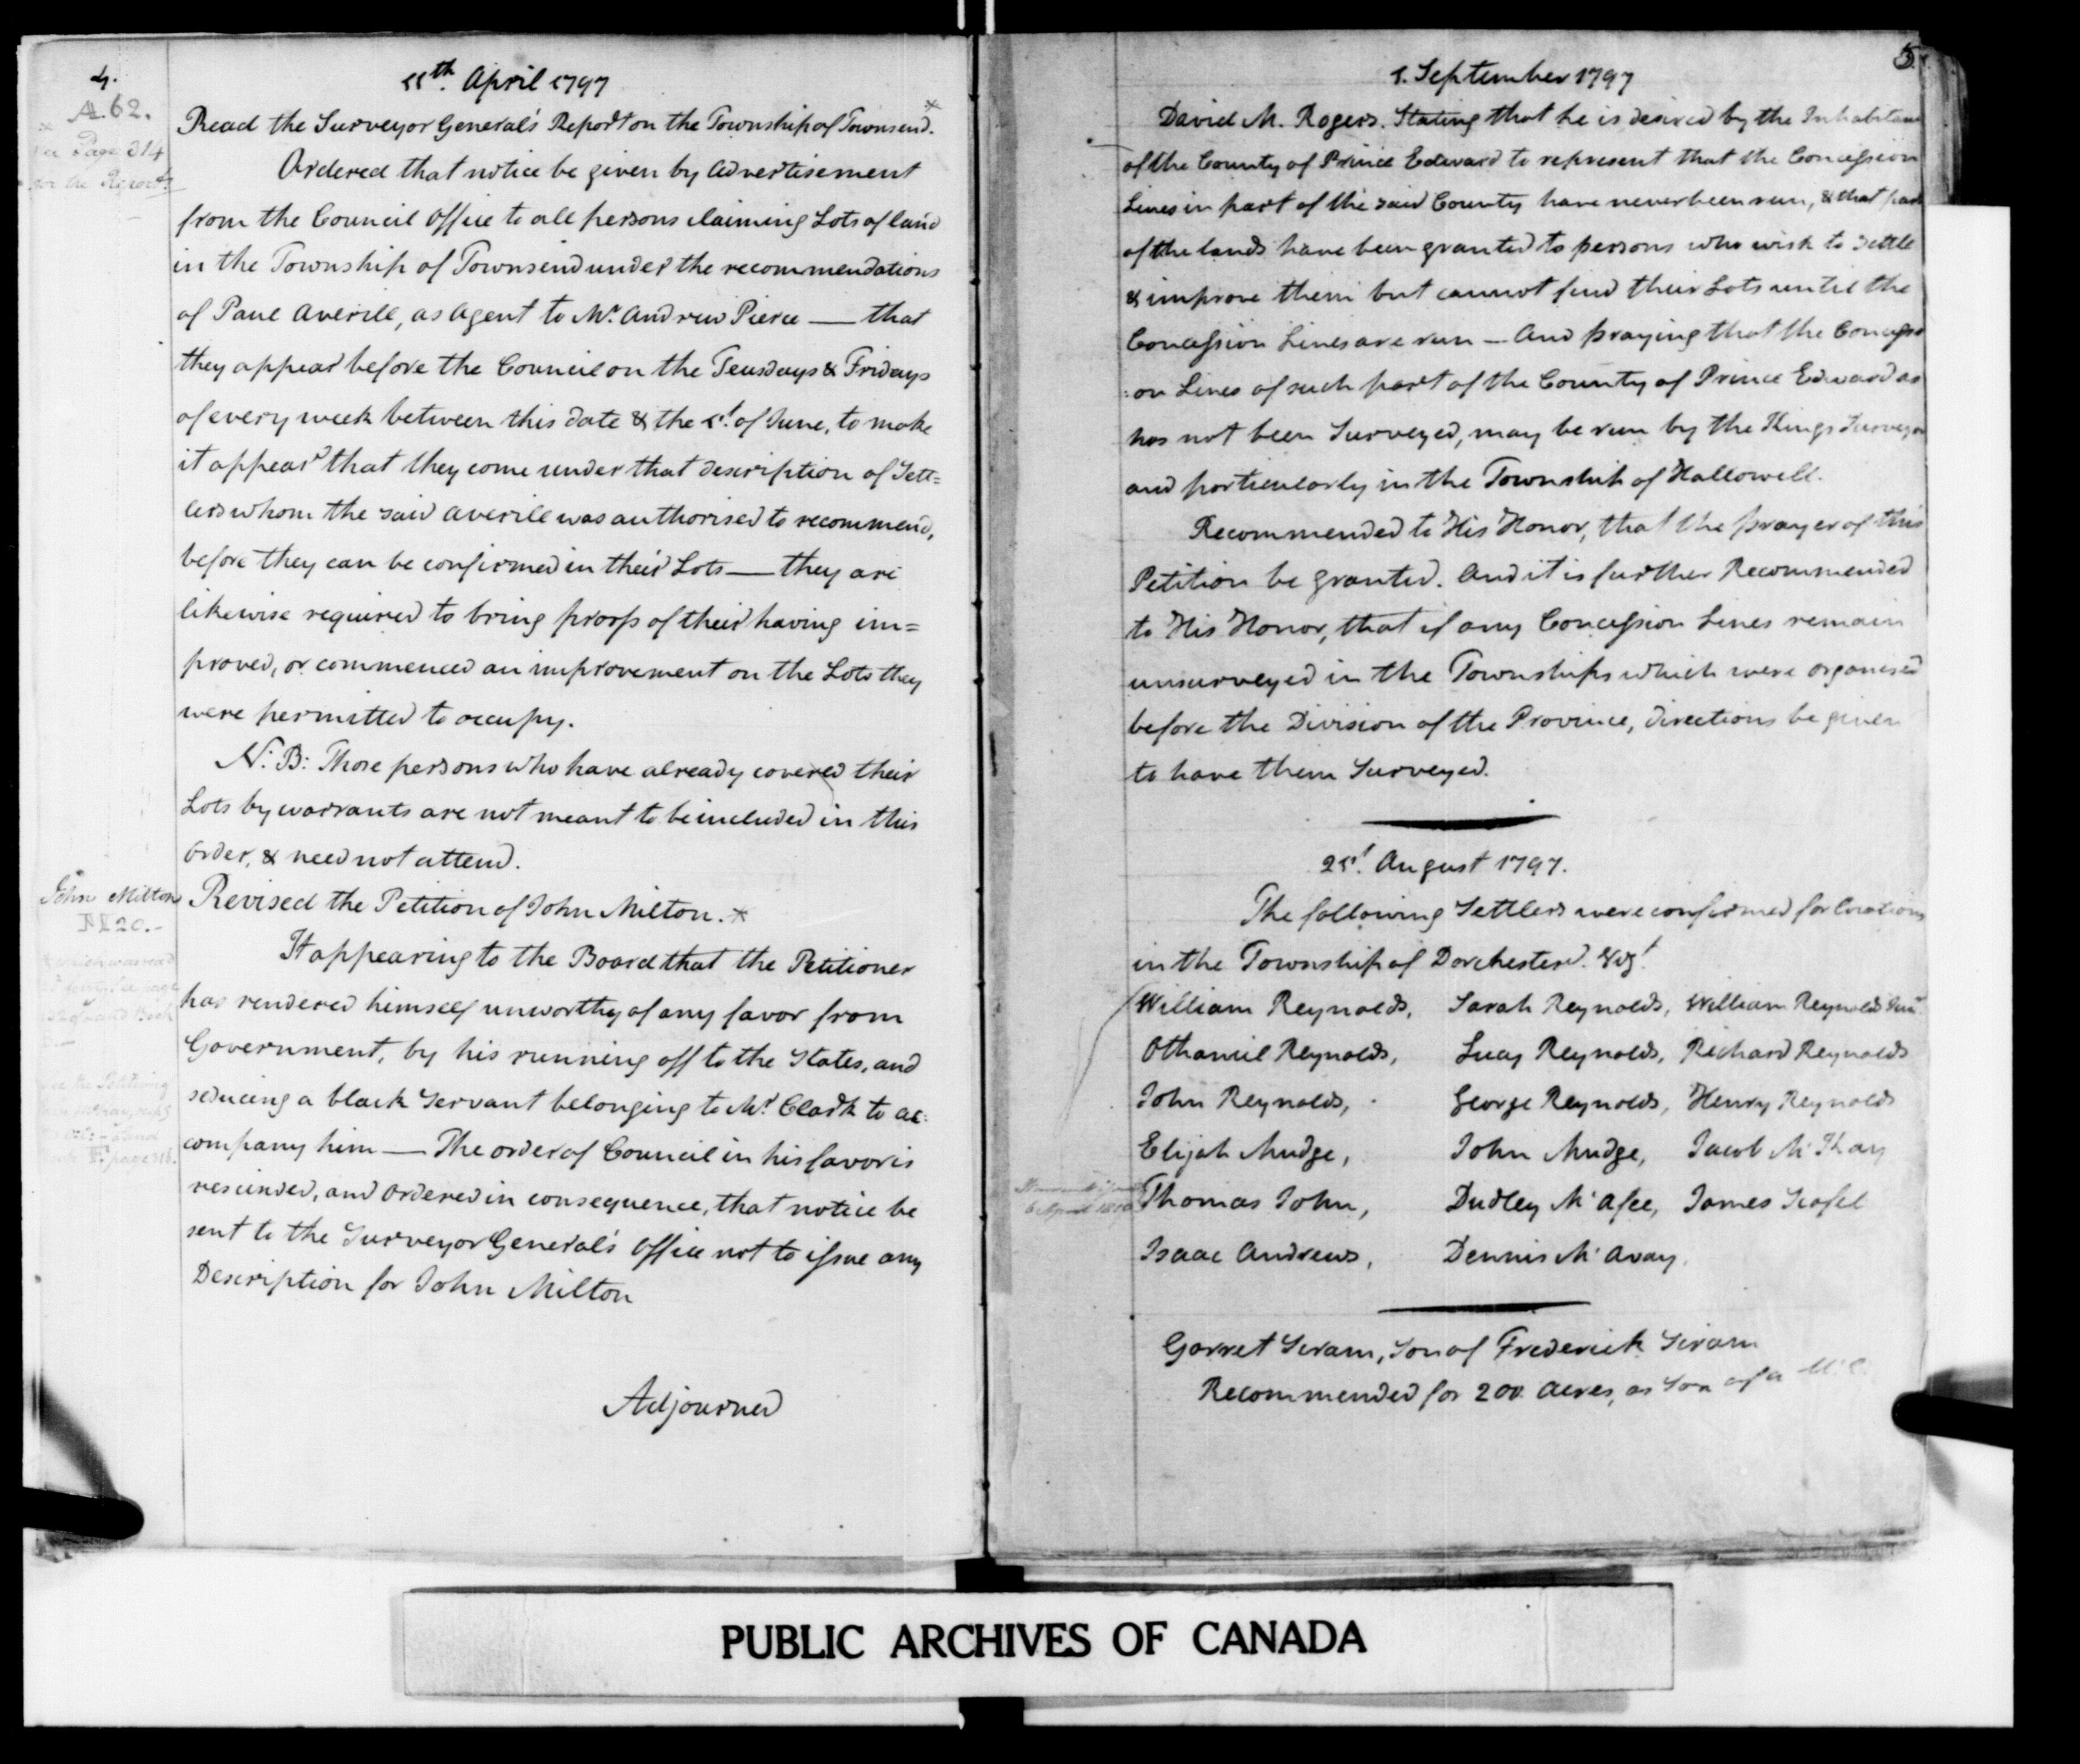 4.
A. 62.
Page 314
for the Report
11th. April 1797
Read the Surveyor General's Report on the Township of Townsend.
Ordered that notice be given by advertisement
from the Council Office to all persons claiming Lots of land
in the Township of Townsend under the recommendations
of Paul Averill, as Agent to Mr. Andrew Pierce — that
they appear before the Council on the Teusdays & Fridays
of every week between this date & the 1st. of June, to make
it appear that they come under that description of Sett=
lers whom the said Averill was authorised to recommend,
before they can be confirmed in their Lots — they are
likewise required to bring proofs of their having im=
proved, or commenced an improvement on the Lots they
were permitted to occupy.
N: B: Those persons who have already covered their
Lots by warrants are not meant to be included in this
order, & need not attend.
John Milton
Revised the Petition of John Milton.
It appearing to the Board that the Petitioner
has rendered himself unworthy of any favor from
Government, by his running off to the States, and
seducing a black Servant belonging to Mr. Clark to ac:
company him — The order of Council in his favor is
rescinded, and Ordered in consequence, that notice be
sent to the Surveyor General's Office not to issue any
Description for John Milton
Adjourned
5.
1. September 1797
David M. Rogers. Stating that he is desired by the Inhabitants
of the County of Prince Edward to represent that the Concession
Lines in part of the said County have never been run, & that part
of the lands have been granted to persons who wish to settle
& improve them but cannot find their Lots until the
Concession Lines are run — And praying that the Concessi
:on Lines of such part of the County of Prince Edward as
has not been Surveyed, may be run by the Kings Surveyor
and particularly in the Township of Hallowell.
Recommended to His Honor, that the prayer of this
Petition be granted. And it is further Recommended
to His Honor, that if any Concession Lines remain
unsurveyed in the Townships which were organised
before the Division of the Province, directions be given
to have them Surveyed.
21st. August 1797.
The following Settlers were confirmed for locations
in the Township of Dorchester. Vizt.
William Reynolds, Sarah Reynolds, William Reynolds Junr.
Othaniel Reynolds, Lucy Reynolds, Richard Reynolds
John Reynolds, George Reynolds, Henry Reynolds
Elijah Mudge, John Mudge, Jacob McKay
Thomas John, Dudley McAfee, James
Isaac Andrews, Dennis McAvay.
Garret Scram, Son of Frederick Scram
Recommended for 200 Acres, as Son of a U.E.
PUBLIC ARCHIVES OF CANADA